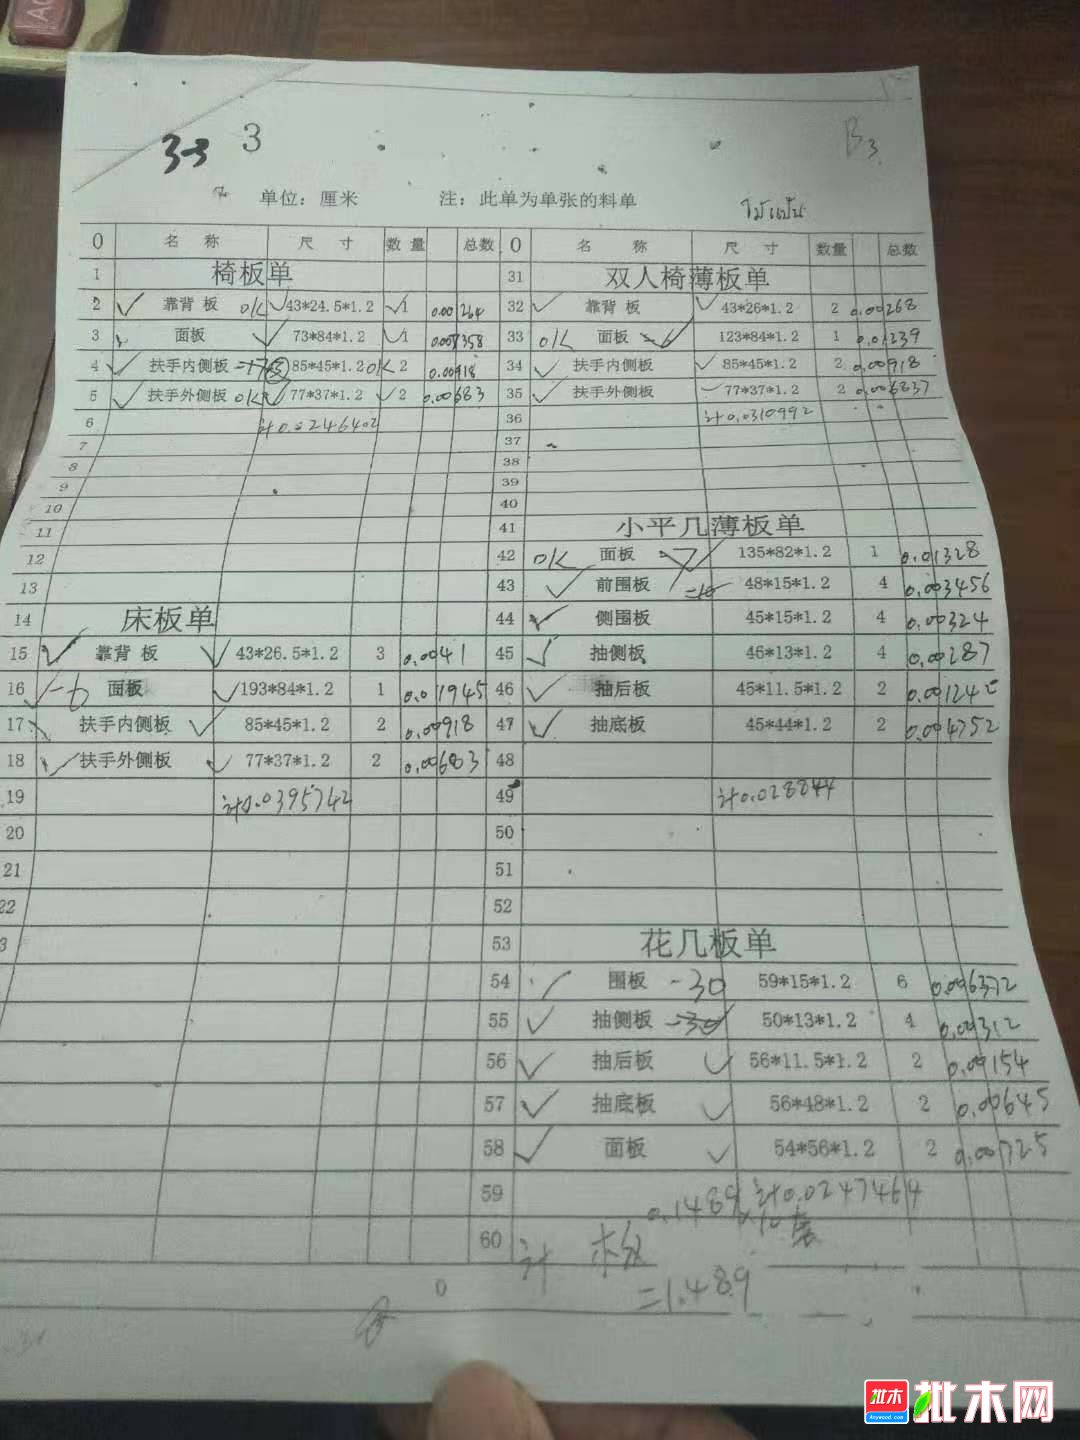 3-3 3
B3
单位：厘米 注：此单为单张的料单
ไม้แป้น
0 名 称 尺 寸 数 量 总数
1 椅板单
2 靠背 板 OK 43*24.5*1.2 1 0.00264
3 面板 73*84*1.2 1 0.007358
4 扶手内侧板 85*45*1.2 OK 2 0.00918
5 扶手外侧板 OK 77*37*1.2 2 0.00683
6 计0.0246402
7
8
9
10
11
12
13
14 床板单
15 靠背 板 43*26.5*1.2 3 0.0041
16 -6 面板 193*84*1.2 1 0.01945
17 扶手内侧板 85*45*1.2 2 0.00918
18 扶手外侧板 77*37*1.2 2 0.00683
19 计0.0395742
20
21
22
3
0 名 称 尺 寸 数量 总数
31 双人椅薄板单
32 靠背 板 43*26*1.2 2 0.00268
33 OK 面板 -6 123*84*1.2 1 0.01239
34 扶手内侧板 85*45*1.2 2 0.00918
35 扶手外侧板 77*37*1.2 2 0.006837
36 计0.0310992
37
38
39
40
41 小平几薄板单
42 OK 面板 135*82*1.2 1 0.01328
43 前围板 48*15*1.2 4 0.003456
44 侧围板 45*15*1.2 4 0.00324
45 抽侧板 46*13*1.2 4 0.00287
46 抽后板 45*11.5*1.2 2 0.00124
47 抽底板 45*44*1.2 2 0.004752
48
49 计0.028844
50
51
52
53 花几板单
54 围板 -30 59*15*1.2 6 0.006372
55 抽侧板 -30 50*13*1.2 4 0.00312
56 抽后板 56*11.5*1.2 2 0.00154
57 抽底板 56*48*1.2 2 0.00645
58 面板 54*56*1.2 2 0.00725
59 计0.0247464
60 计 板 0.1489×10套
=1.489
0
批木
Anywood.com
批木网